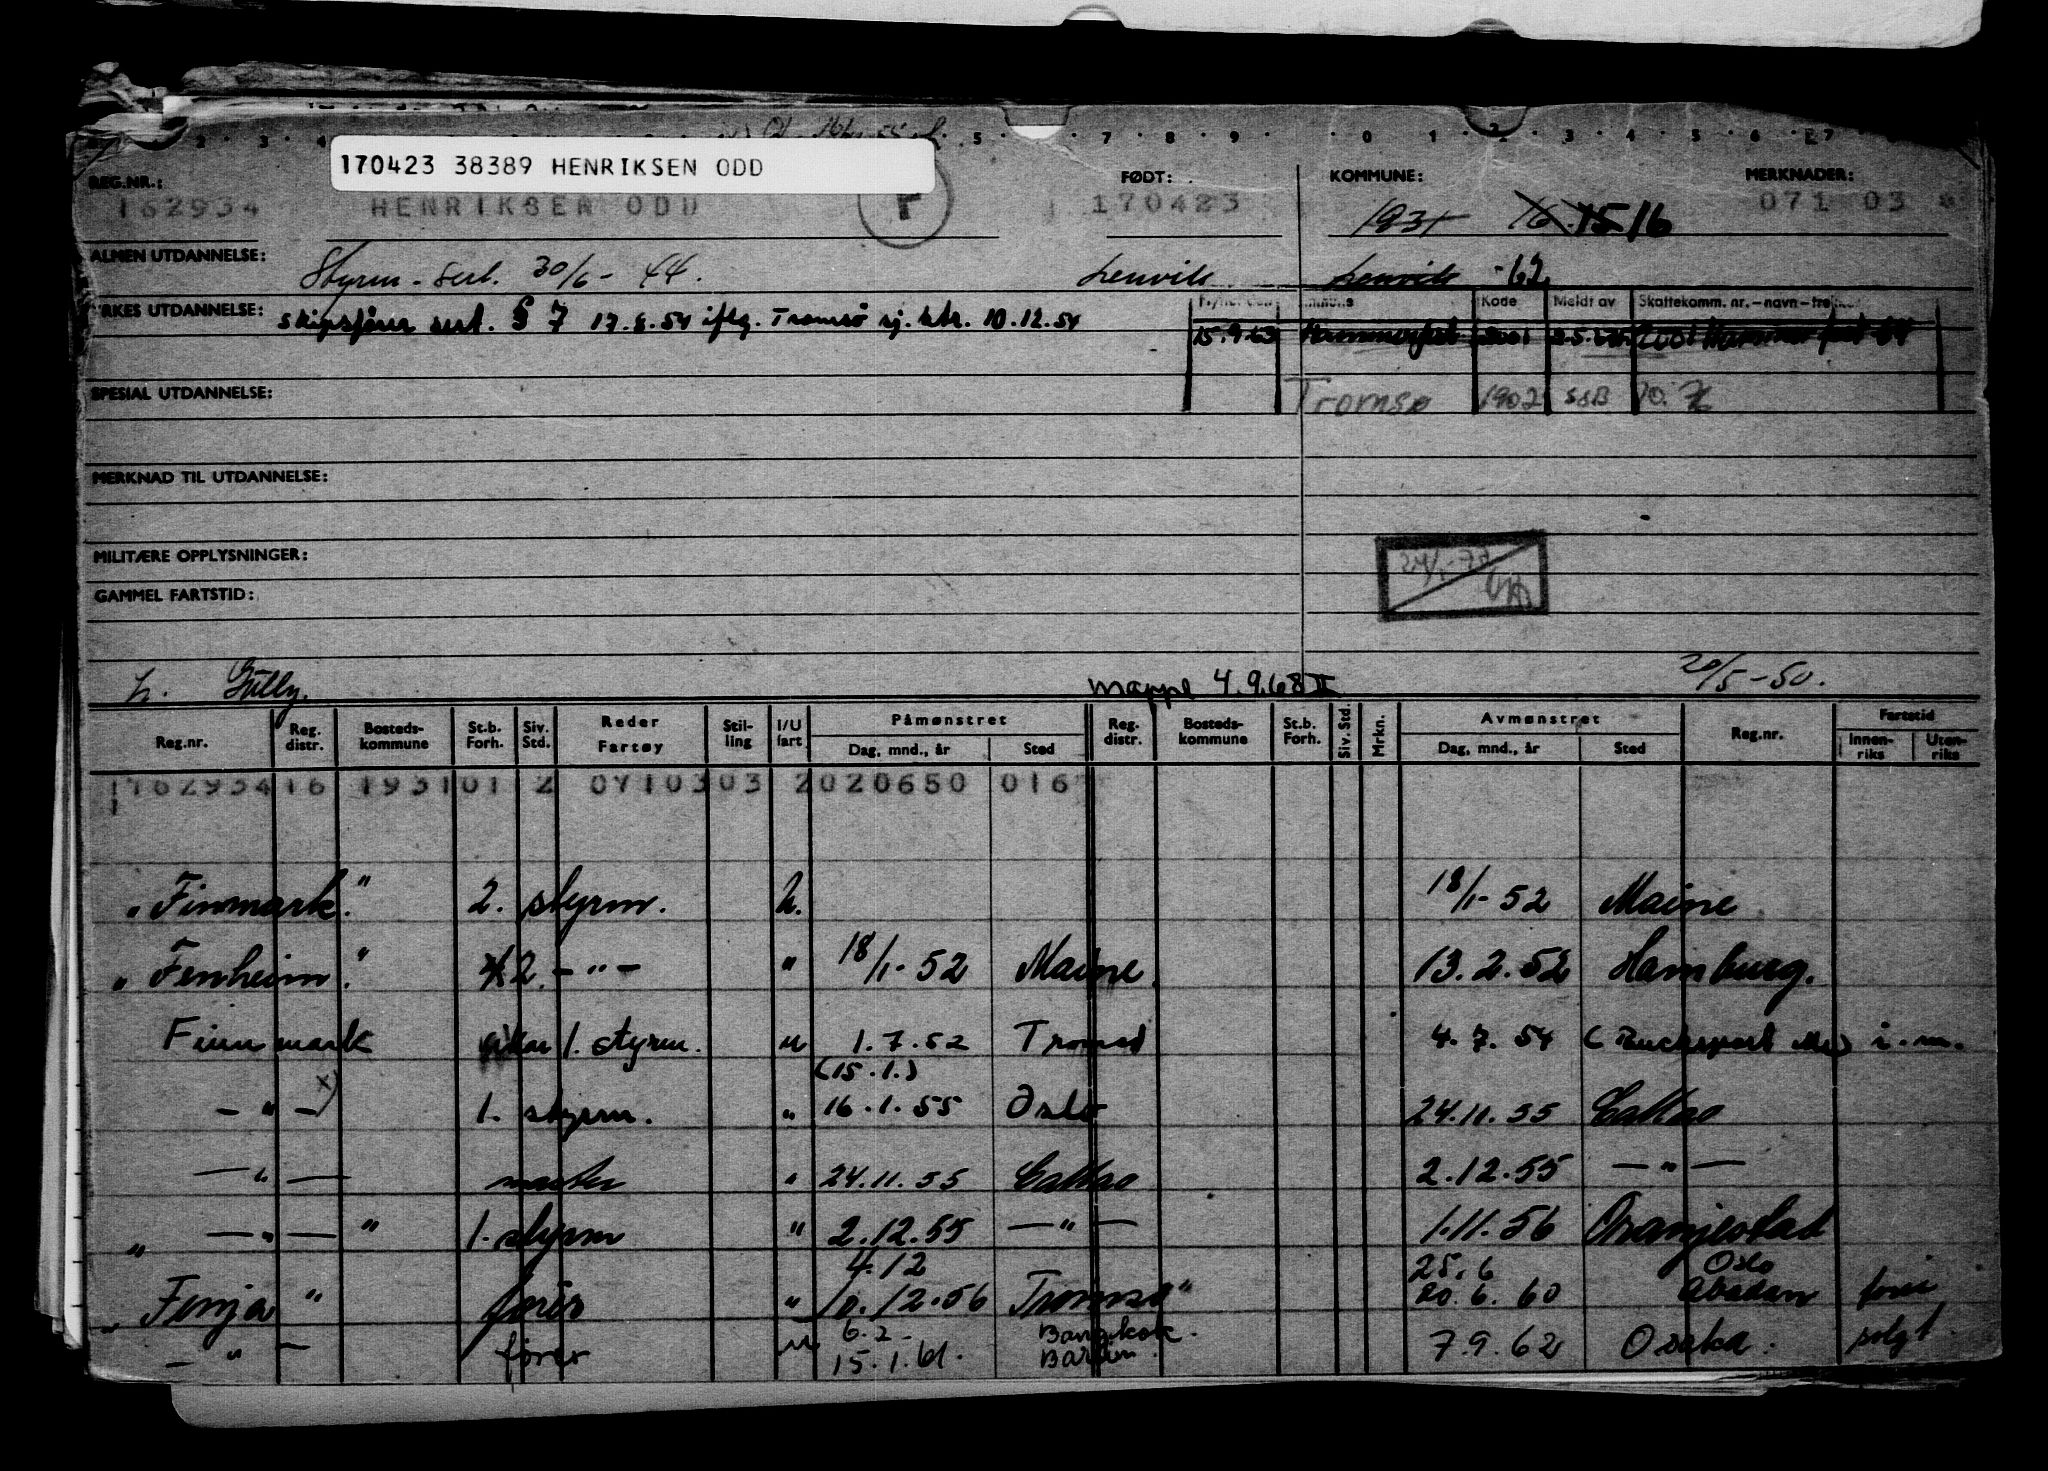 170423 38389 HENRIKSEN ODD
REG.NR.: FØDT: KOMMUNE: MERKNADER:
162934 HENRIKSEN ODD F 170423 1931 16 1516 071 03
ALMEN UTDANNELSE: Styrm-sert. 30/6-44. Lenvik Lenvik -62
YRKES UTDANNELSE: skipsfører sert. § 7 17.8.54 iflg. Tromsø sj. ktr. 10.12.54
Kode Meldt av Skattekomm. nr.-navn-fre
15.9.63 Hammerfest 2001
SPESIAL UTDANNELSE: Tromsø 1902 SSB
MERKNAD TIL UTDANNELSE:
MILITÆRE OPPLYSNINGER:
GAMMEL FARTSTID:
mappe 4.9.68 II 20/5-50.
Reg.nr. Reg. distr. Bosteds-kommune St.b. Forh. Siv. Std. Reder Fartøy Stil-ling I/U fart Påmønstret Dag, mnd., år Sted Reg. distr. Bosteds-kommune St.b. Forh. Siv. Std. Mrkn. Avmønstret Dag, mnd., år Sted Reg.nr. Fartstid Innen-riks Uten-riks
162934 16 1931 01 2 07103 03 2 020650 016
"Finmark." 2. styrm. U. 18/1-52 Maine
"Fenheim." 2. -"- " 18/1-52 Maine. 13.2.52 Hamburg.
Finnmark 1. styrm. u 1.7.52 Tromsø 4.7.54 (Bucksport Me) i.m.
(15.1.)
-"- x) 1. styrm. " 16.1.55 Oslo 24.11.55 Callao
-"- master " 24.11.55 Callao 2.12.55 -"-
" -"- " 1. styrm " 2.12.55 -"- 1.11.56 Oranjestad
4.12 25.6 Oslo
"Fenja" fører " 10.12.56 Tromsø" 20.6.60 Abadan
6.2- Bangkok.
-"- fører u 15.1.61. 7.9.62 Osaka. solgt